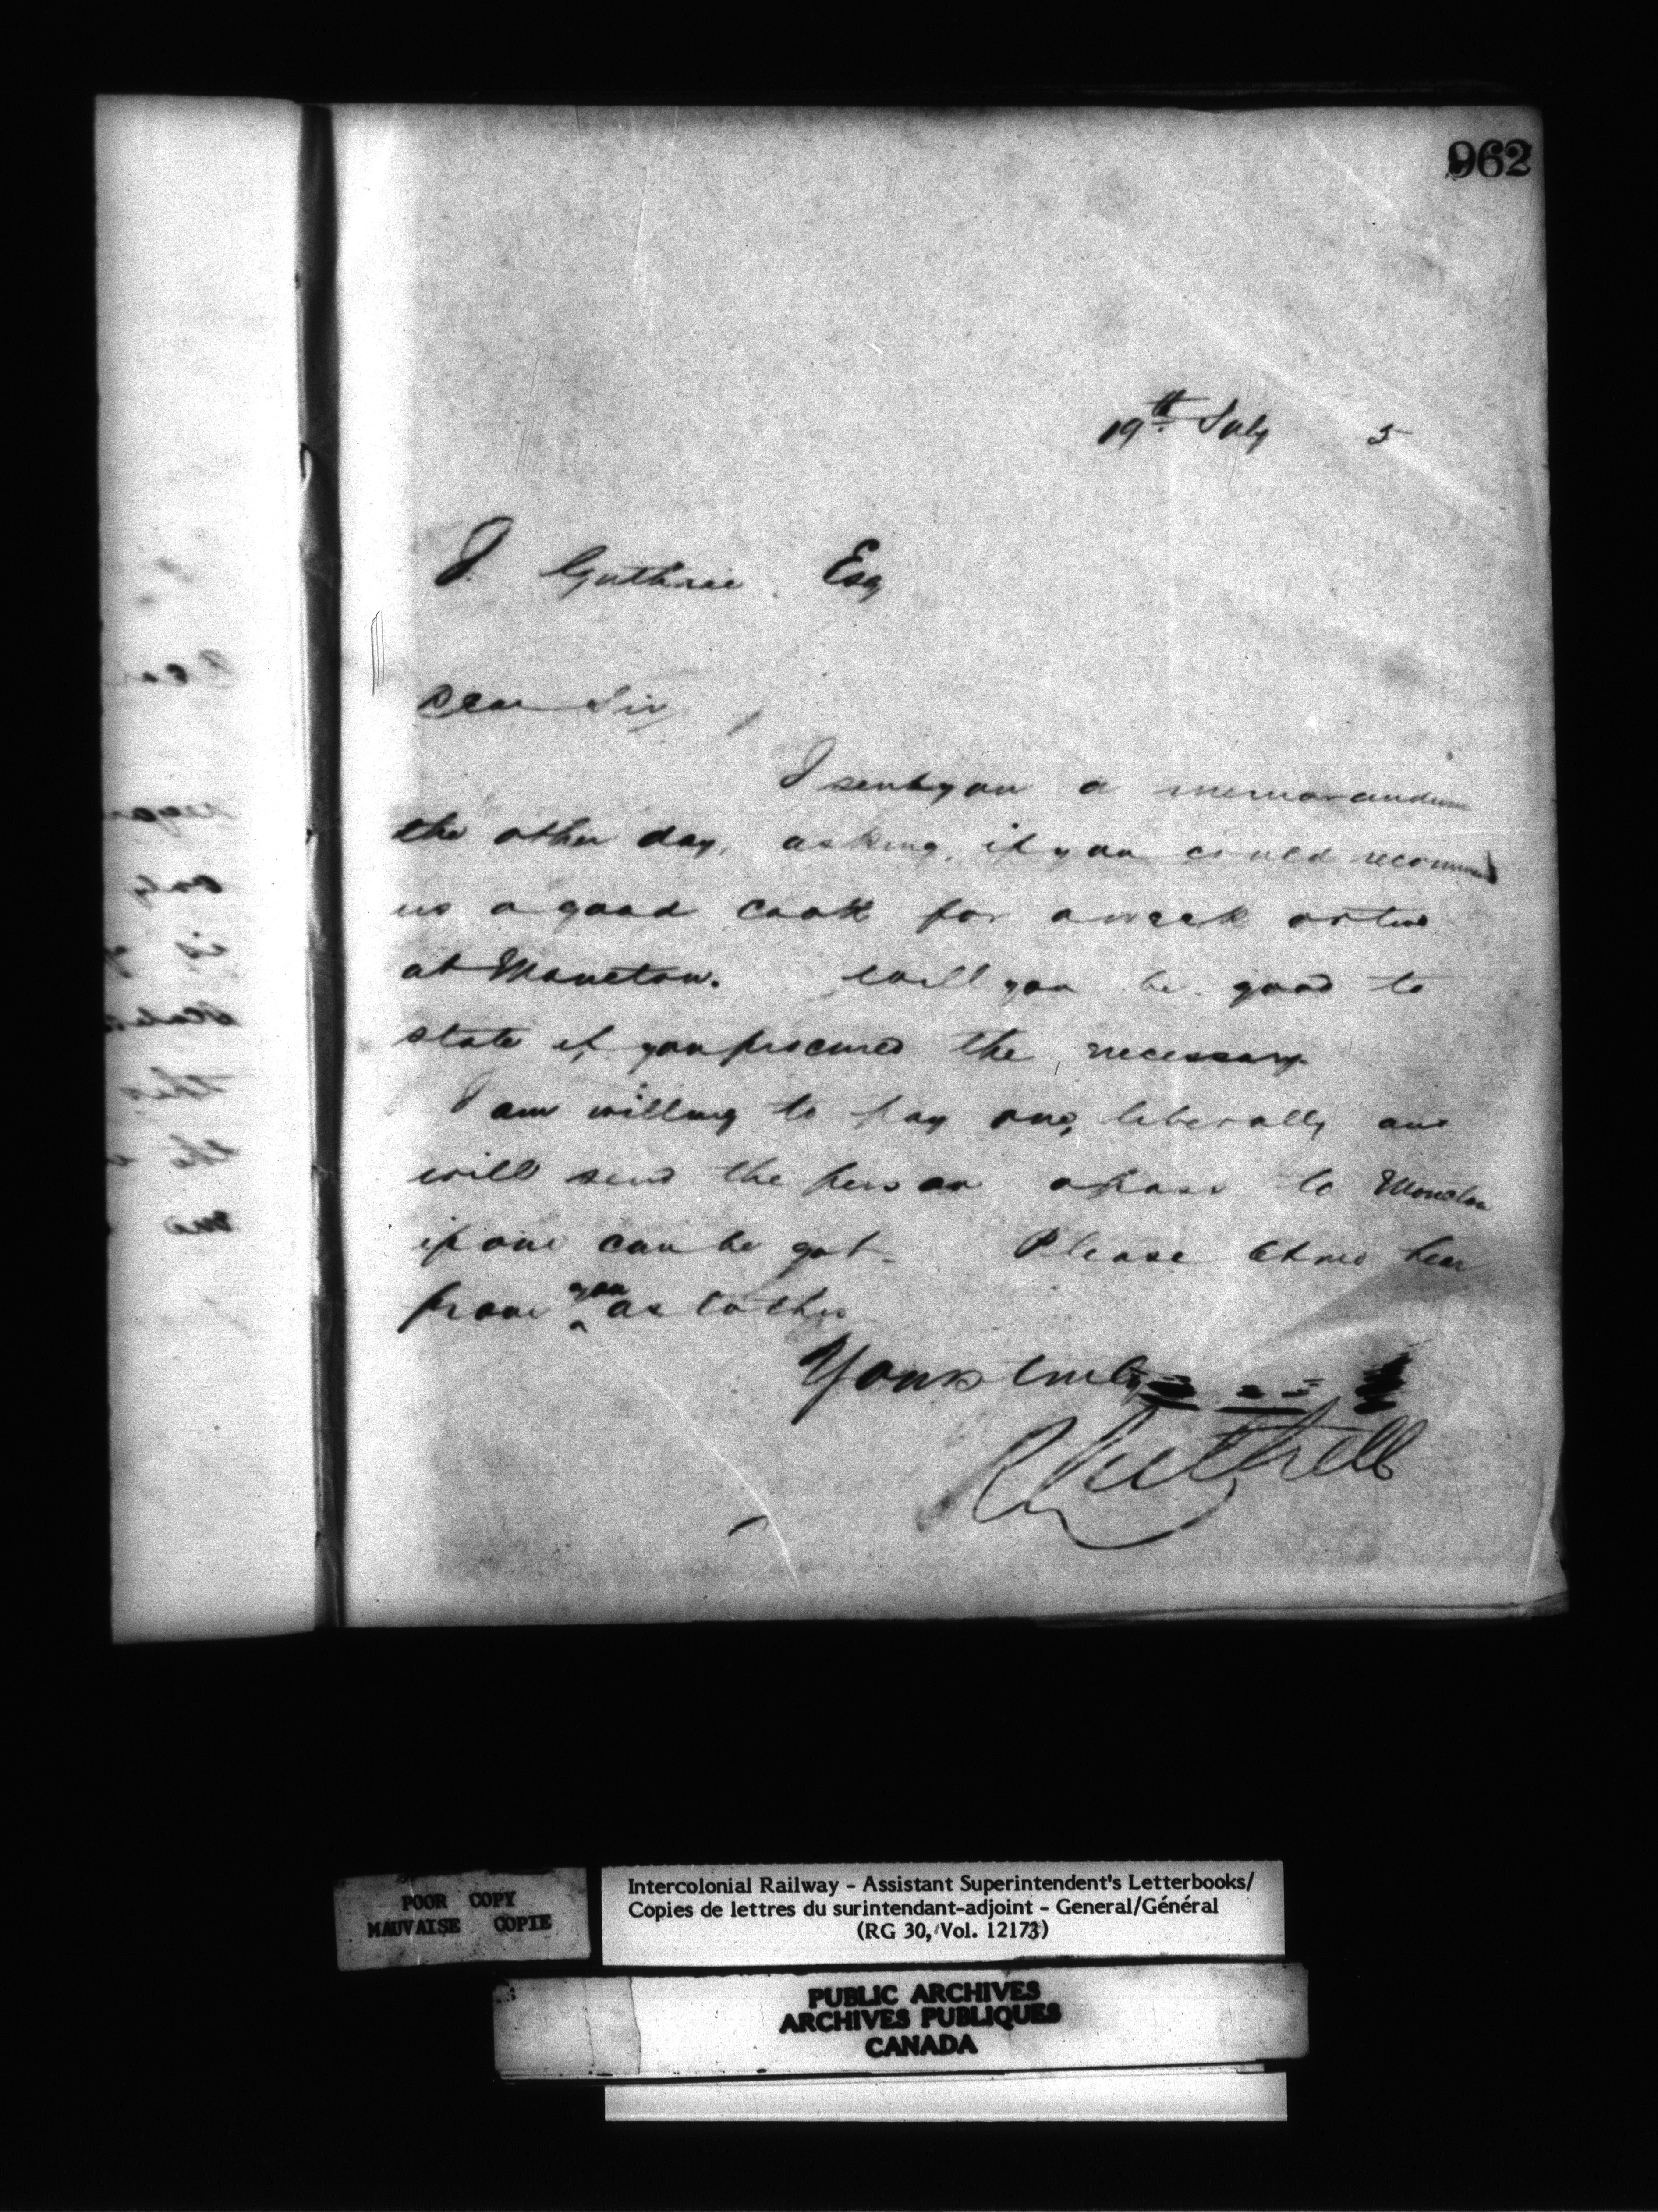 962
19th July 5
J. Guthrie Esq
Dear Sir,
I sent you a memorandum
the other day, asking, if you could recommend
us a good cook for a week or two
at Moncton. Will you be good to
state if you procured the necessary
I am willing to pay one, liberally and
will send the person a pass to Moncton
if one can be got. Please let me hear
from you as to this
Yours truly
POOR COPY
MAUVAISE COPIE
Intercolonial Railway - Assistant Superintendent's Letterbooks/
Copies de lettres du surintendant-adjoint - General/Général
(RG 30, Vol. 12173)
PUBLIC ARCHIVES
ARCHIVES PUBLIQUES
CANADA